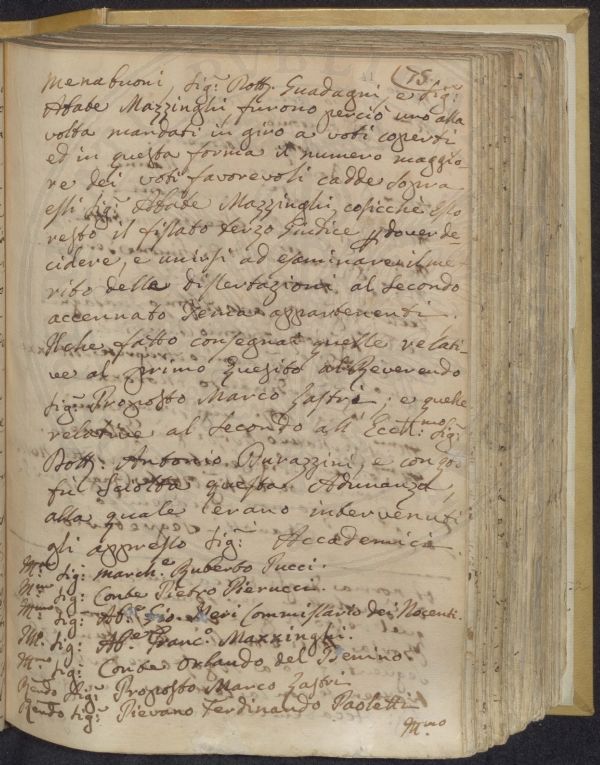 75.
41
Menabuoni Sig:r Dott: Guadagni e Sig:r
Abate Mazzinghi furono perciò uno alla
volta mandati in giro a voti coperti
ed in questa forma il numero maggio-
re dei voti favorevoli cadde sopra
essi Sig:r Abate Mazzinghi, cosicchè Esso
restò il fissato terzo Giudice p dover de-
cidere, e unirsi ad esaminare il me
rito delle dissertazioni al secondo
accennato Tema appartenenti.
Il che fatto consegnai quelle relati-
ve al primo Quesito al Reverendo
Sig:r Proposto Marco Lastri; e quelle
relative al secondo all' Eccll:mo Sig:r
Dott: Antonio Durazzini, e con ciò
fù sciolta questa Adunanza,
alla quale erano intervenuti
gli appresso Sig:ri Accademici
Ill: Sig: March:e Ruberto Pucci.
Ill:mo Sig: Conte Pietro Pierucci.
Ill:mo Sig: Ab:e Gio: Neri Commissario dei Nocenti.
Ill: Sig: Ab:e Franc:o Mazzinghi.
Ill:mo Sig: Conte Orlando del Benino.
Rendo Sig: Proposto Marco Lastri
Rendo Sig: Pievano Ferdinando Paoletti
Ill:mo